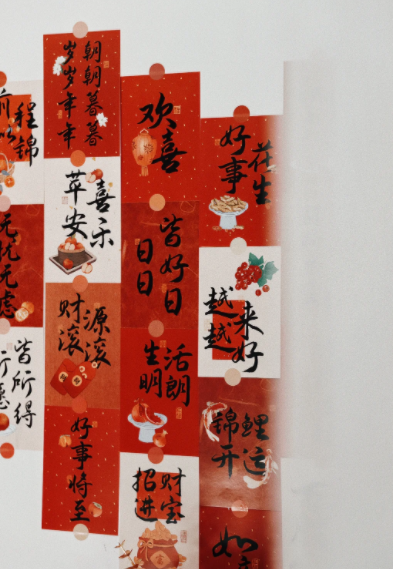 前程
似锦
无忧无虑
皆所得
朝朝暮暮
岁岁年年
喜乐
苹安
财源
滚滚
好事将至
欢喜
日日
皆好日
生活
明朗
招财
进宝
好事
花生
越来
越好
锦鲤
开运
如